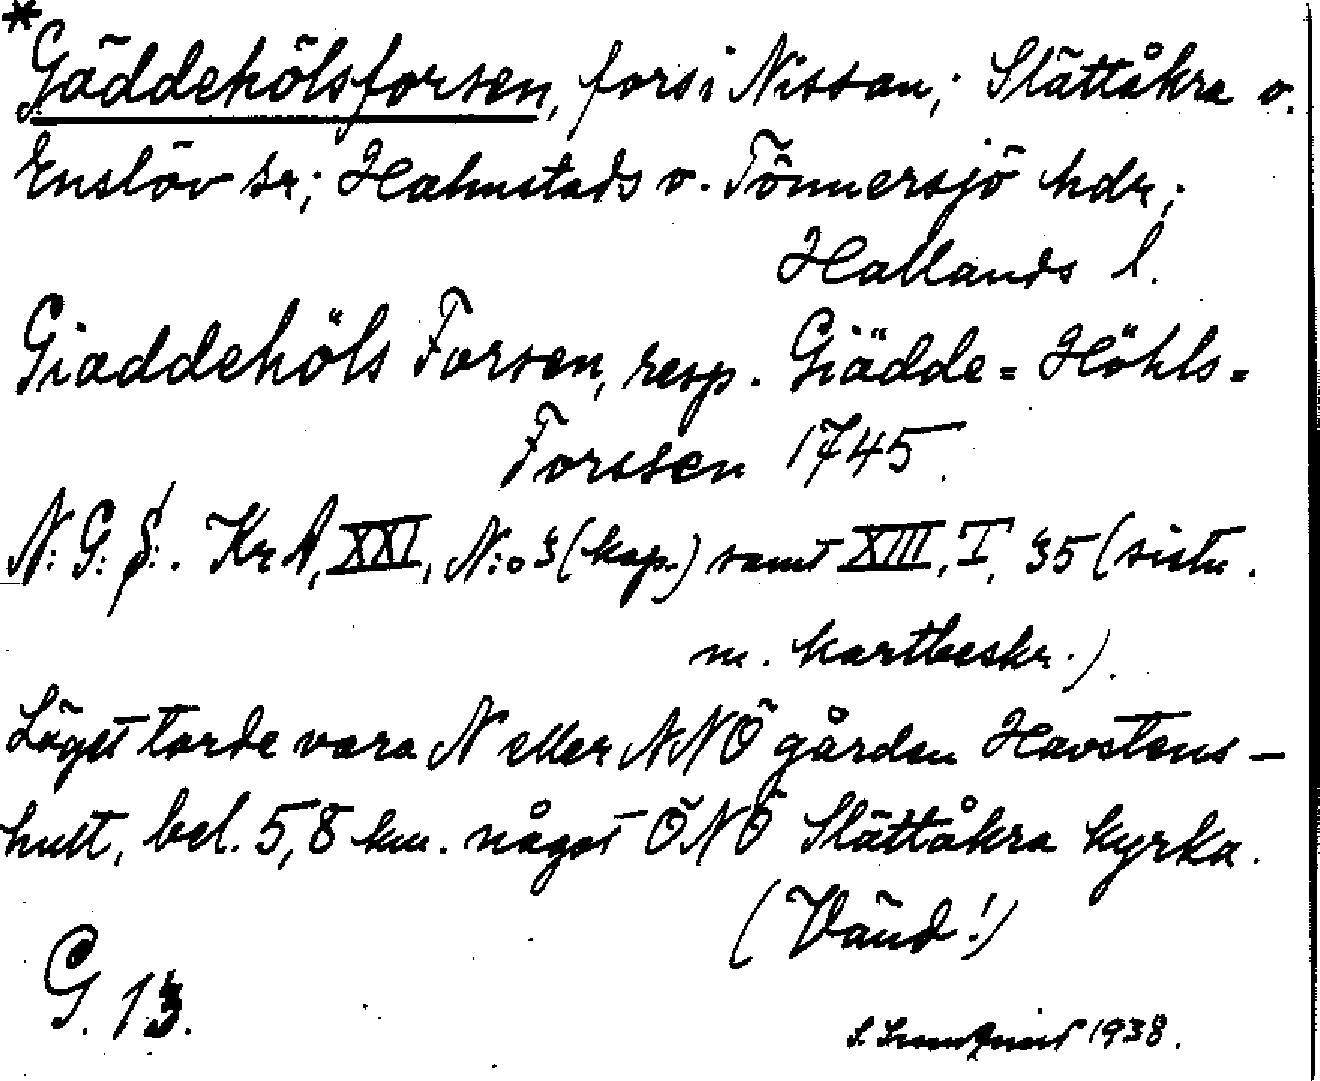 *Gäddehölsforsen, fors i Nissan; Slättåkra o.
Enslöv sr; Halmstads o. Tönnersjö hdr;
Hallands l.
Giaddehöls Forsen, resp. Giädde=Höhls=
Forssen 1745.
N: G: S:. KrA, XXI, N:o 3 (kop.) samt XIII, I, 35 (sistn.
m. kartbeskr.).
Läget torde vara N eller NNÖ gården Havstens-
hult, bel. 5,8 km. något ÖNÖ Slättåkra kyrka.
(Vänd!)
G. 13.
1938.